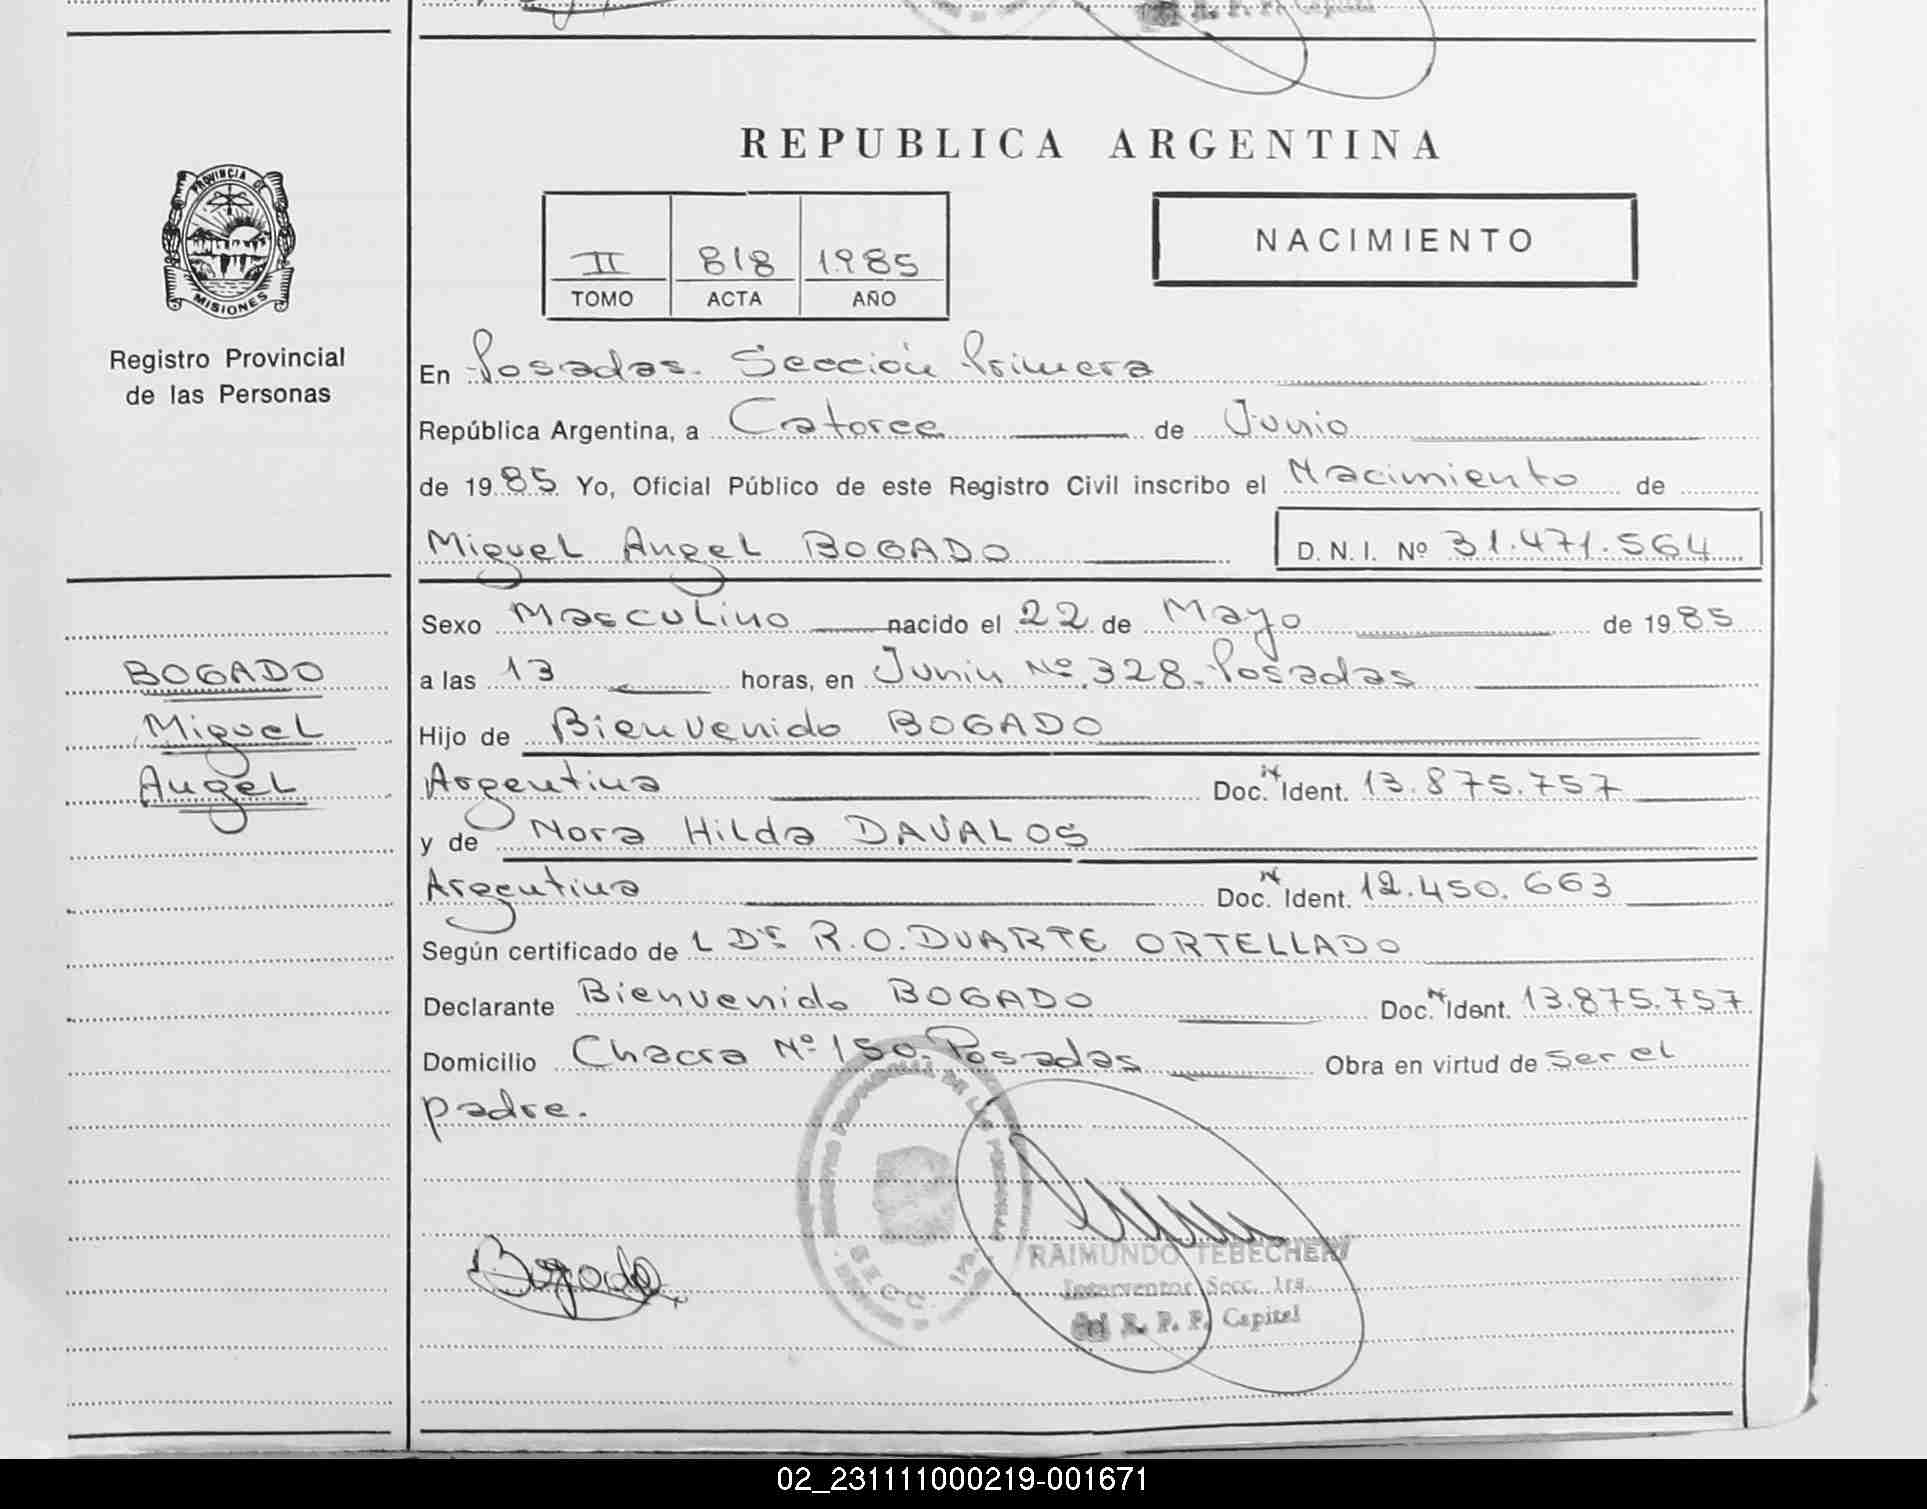 R. P. P. Capital
REPUBLICA ARGENTINA
PROVINCIA DE
MISIONES
Registro Provincial
de las Personas
II 818 1985
TOMO ACTA AÑO
NACIMIENTO
En Posadas. Sección Primera
República Argentina, a Catorce de Junio
de 1985 Yo, Oficial Público de este Registro Civil inscribo el Nacimiento de
Miguel Angel BOGADO D. N. I. Nº 31.471.564
Sexo Masculino nacido el 22 de Mayo de 1985
BOGADO
Miguel
Angel
a las 13 horas, en Junin Nº 328. Posadas
Hijo de Bienvenido BOGADO
Argentina Doc. Ident. 13.875.757
y de Nora Hilda DAVALOS
Argentina Doc. Ident. 12.450.663
Según certificado de L Dr. R.O. DUARTE ORTELLADO
Declarante Bienvenido BOGADO Doc. Ident. 13.875.757
Domicilio Chacra Nº 150. Posadas Obra en virtud de ser el
padre.
REGISTRO PROVINCIAL DE LAS PERSONAS
SECC. 1ra.
Bogado
RAIMUNDO TEBECHERI
Interventor Secc. 1ra.
del R. P. P. Capital
02_231111000219-001671